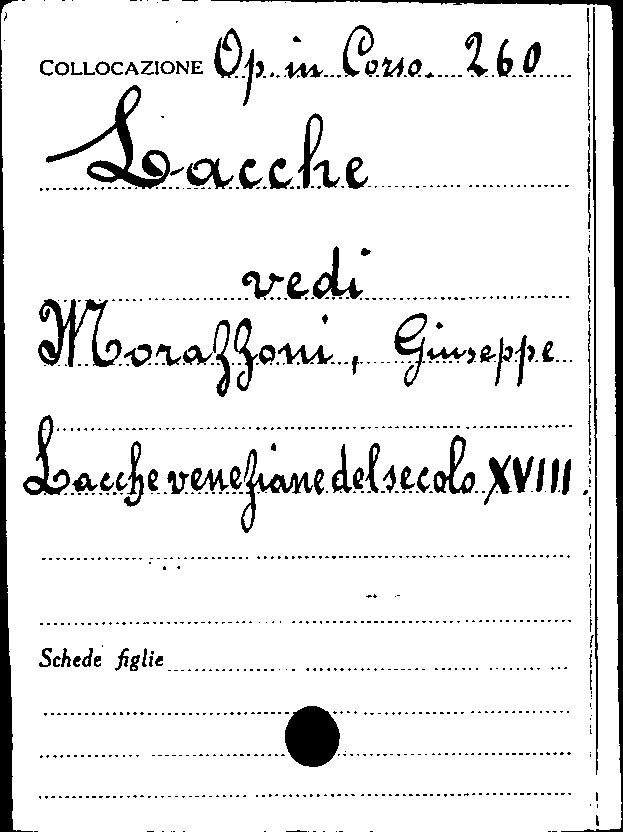 COLLOCAZIONE Op. in Corso. 260
Lacche
vedi
Morazzoni, Giuseppe
Lacche veneziane del secolo XVIII.
Schede figlie